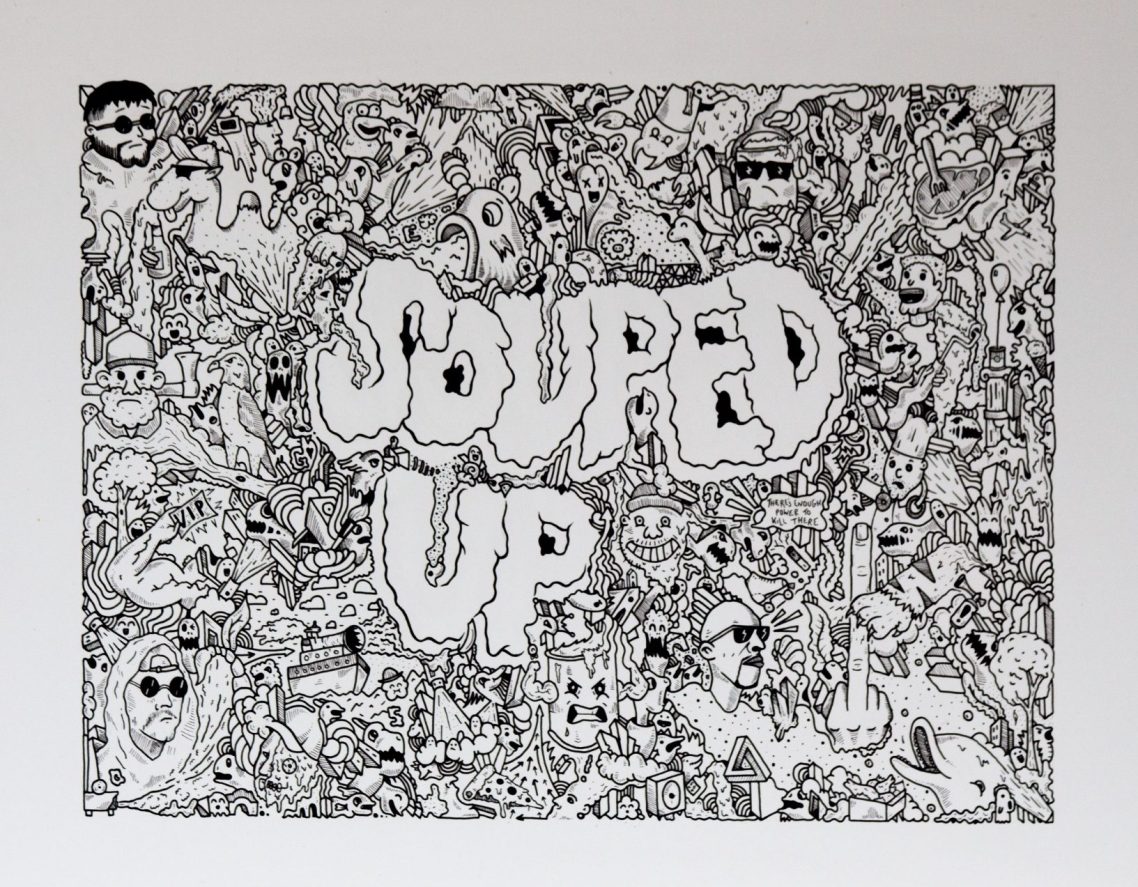 SOUPED
UP
VIP
THERE'S ENOUGH
POWER TO
KILL THERE
E
G
S